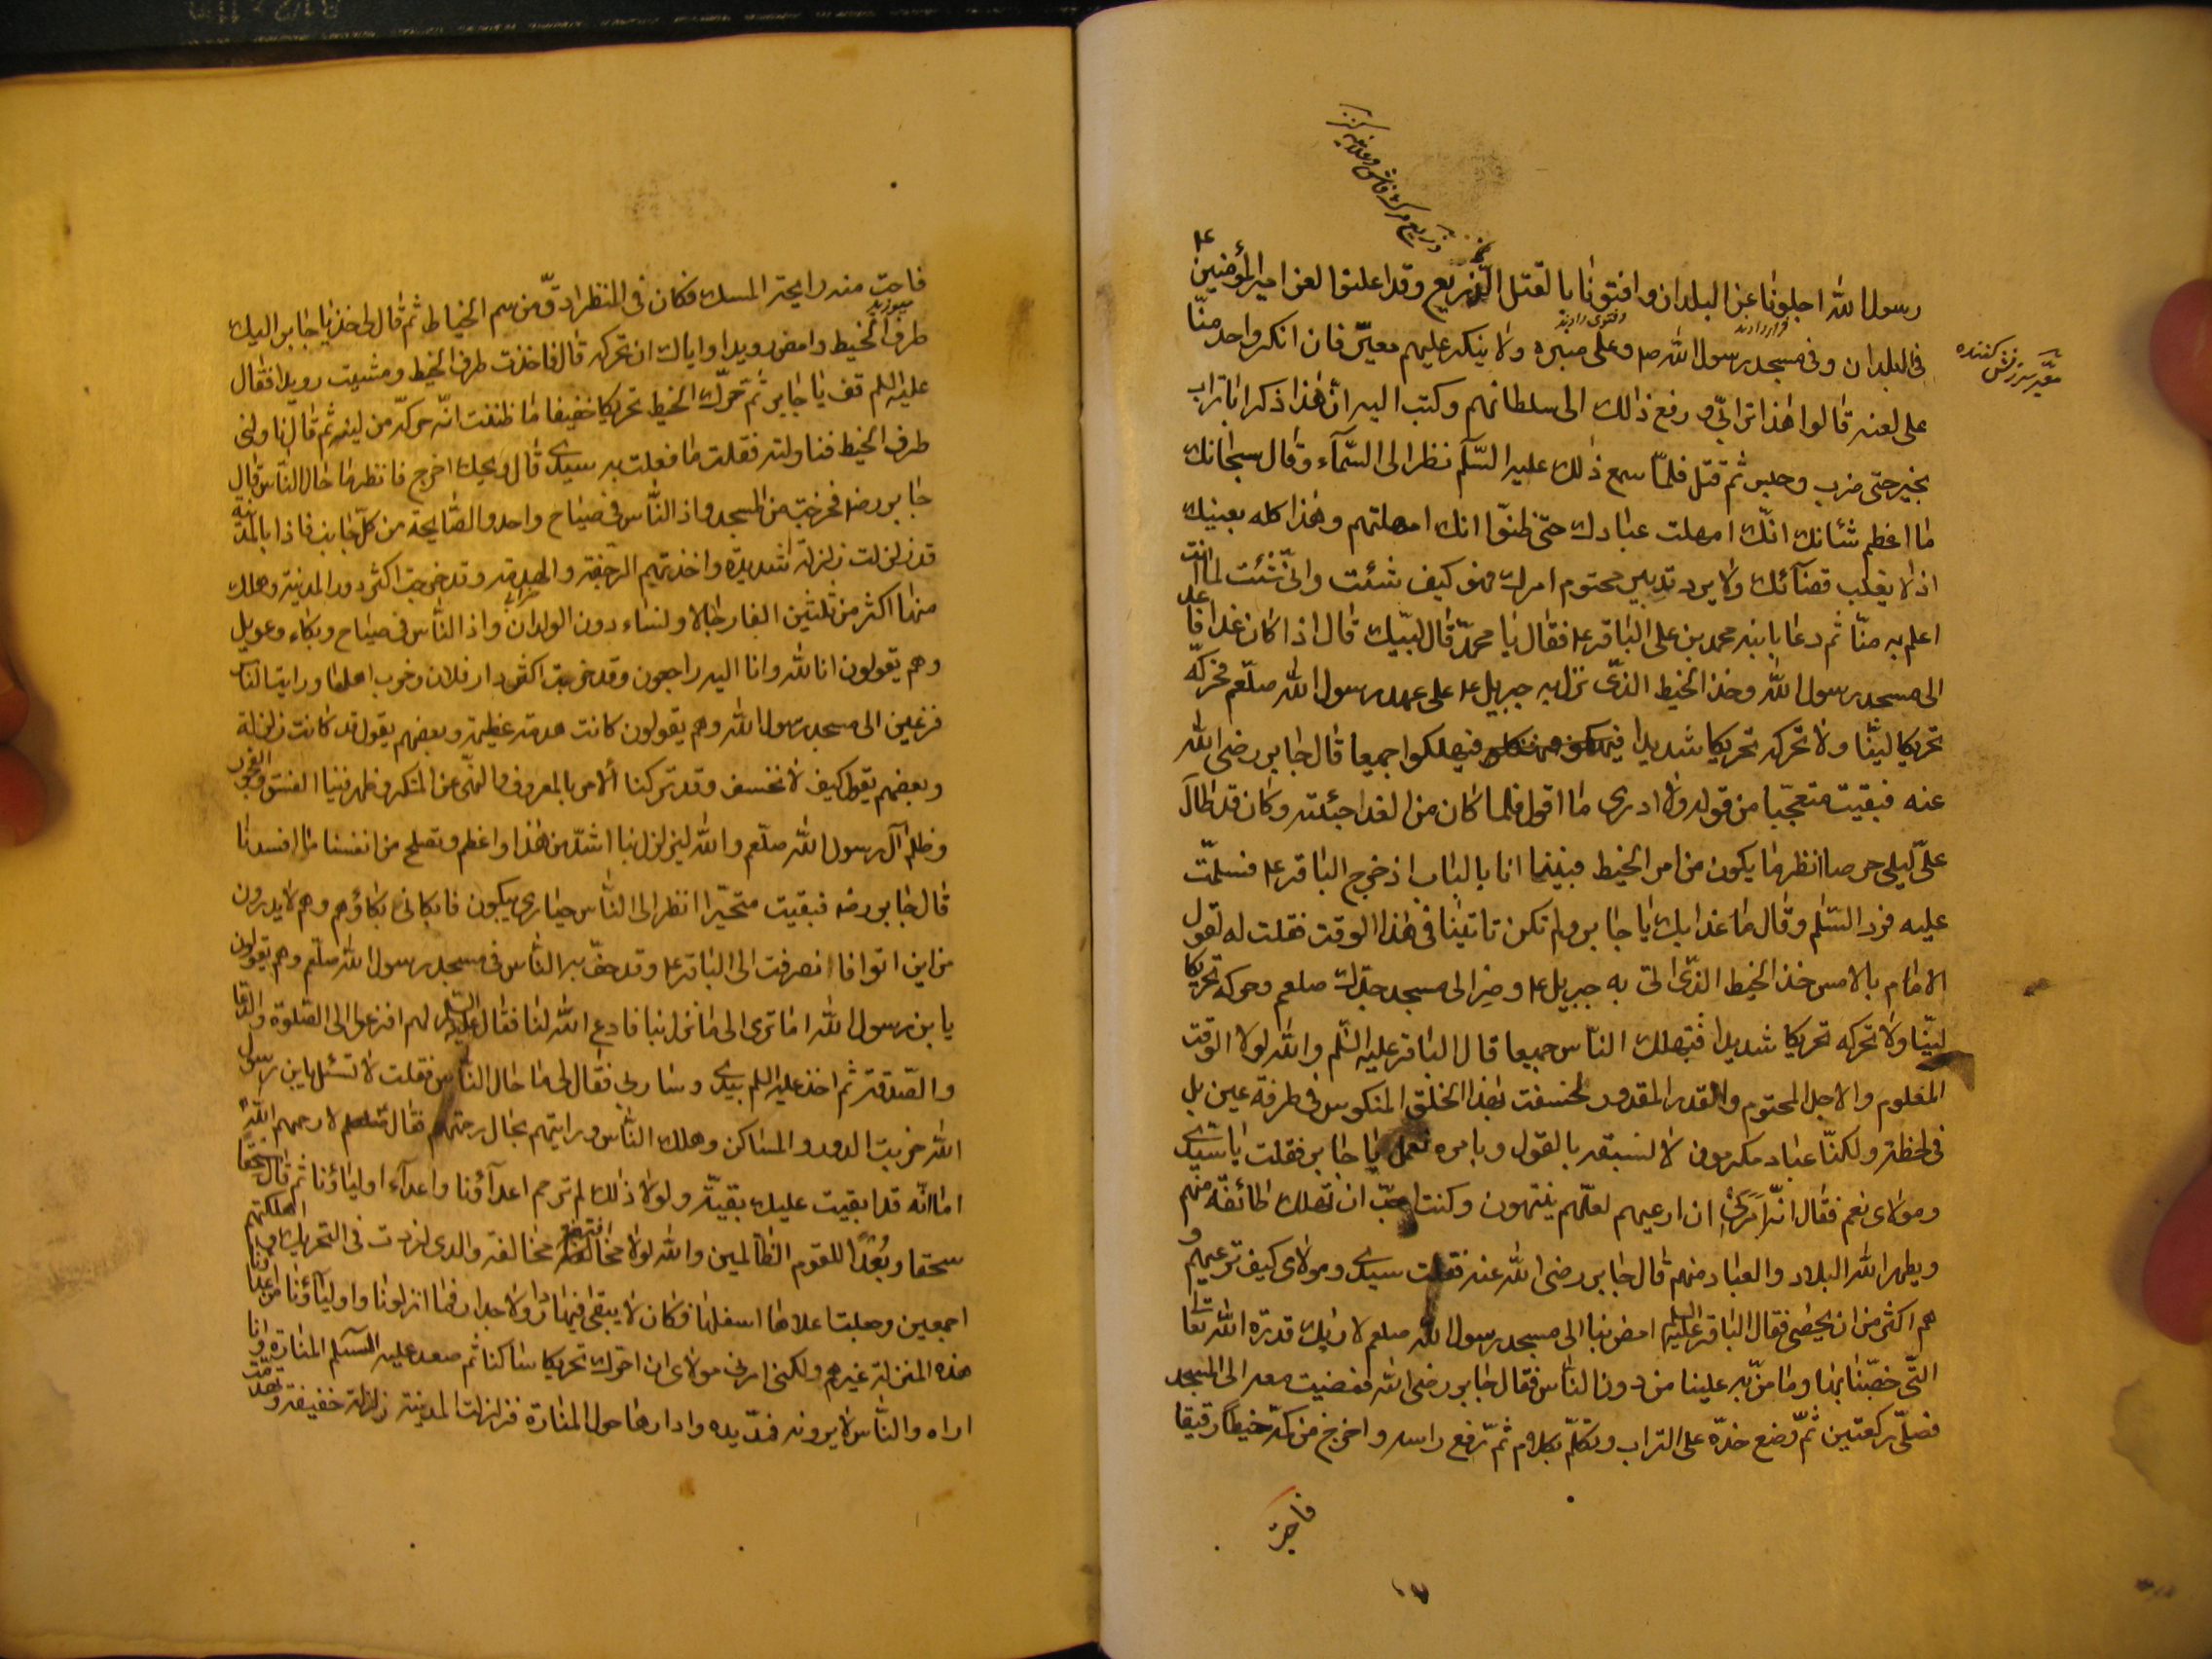 رسول الله اجلونا عن البلدان وافتونا بالقتل الذريع وقد اعلنوا لعن امير المؤمنين ع
فى البلدان وفى مسجد رسول الله ص وعلى منبره ولا ينكر عليهم معيّر فان انكر واحد منّا
على لعنه قالوا هذا ترابىّ و رفع ذالك الى سلطانهم وكتب اليه انّ هذا ذكر اباتراب
بخير حتى ضرب وحبس ثم قتل فلمّا سمع ذلك عليه السّلم نظر الى السّمآء وقال سبحانك
ما اعظم شئانك انّك امهلت عبادك حتّى ظنوّا انك امهلتهم وهذا كله بعينك
اذ لا يغلب قضآئك ولا يرد تدبير محتوم امرك فهو كيف شئت وانّى شئت لما انت
اعلم به منّا ثم دعا بابنه محمد بن على الباقر ع فقال يا محمّد قال لبّيك قال اذا كان غدا فا غد
الى مسجد رسول الله وخذ الخيط الذّى نزل به جبريل ع على عهد رسول الله صلّعم فحرّكه
تحريكا ليّنا ولا تحركه تحريكا شديدا فيهلكوا جميعا قال جابر رضى الله
عنه فبقيت متعجّبا من قوله ولا ادرى ما اقول فلما كان من الغد اجئته وكان قد طال
علىّ ليلى حرصا انظر ما يكون من امر الخيط فبينما انا بالباب اذ خرج الباقر ع فسلمّت
عليه فرد السّلم وقال ما غدا بك يا جابر ولم تكن تاتينا فى هذا الوقت فقلت له لقول
الامام بالامس خذ الخيط الذّى اتى به جبريل ع وصِر الى مسجد جدّك صلعم وحركه تحريكا
ليّنا ولا تحركه تحريكا شديدا فتهلك النّاس جميعا قال الباقر عليه السّلم والله لولا الوقت
المعلوم والاجل المحتوم والقدر المقدور لخسفت بهذا الخلق المنكوس فى طرفة عين بل
فى لحظة ولكنّا عباد مكرمون لا نسبقه بالقول وبامره نعمل يا جابر فقلت يا سيّدى
ومولاى نعم فقال انّه امرنى ان ارعبهم لعلّهم ينتهون وكنت احبّ ان تهلك طائفة منهم
ويطهر الله البلاد والعباد منهم قال جابر رضى الله عنه فقلت سيدى ومولاى كيف ترعبهم و
هم اكثر من ان يحصى فقال الباقر عليه السلم امض بنا الى مسجد رسول الله صلعم لاريك قدرة الله تعالى
التّى خصّنا بها وما منّ به علينا من دون الناس فقال جابر رضى الله فمضيت معه الى المسجد
فصلّى ركعتين ثمّ وضع خدّه على التراب وتكلّم بكلام ثم رفع راسه واخرج من كمّه خيطا رقيقا
معيّر سرزنش كننده
قرار دادند
فتوى دادند
١٧
فاحت منه رايحة المسك فكان فى المنظر ادقّ من سم الخياط ثم قال لى خذ يا جابر اليك
طرف الخيط وامض رويدا واياك ان تحركه قال فاخذت طرف الخيط ومشيت رويدا فقال
عليه السلم قف يا جابر ثم حرّك الخيط تحريكا خفيفا ما ظننت انّه حركّه من لينه ثم قال ناولنى
طرف الخيط فناولته فقلت ما فعلت به سيدى قال ويحك اخرج فانظر ما حال النّاس قال
جابر رض فخرجت من المسجد واذ النّاس فى صياح واحد والصّايحة من كلّ جانب فاذا بالمدينة
قد زلزلت زلزلة شديدة واخذتهم الرّجفة والهدمة وقد خربت اكثر دور المدينة وهلك
منها اكثر من ثلثين الفا رجالا ونساء دون الولدان واذ النّاس فى صياح وبكاء وعويل
وهم يقولون انا لله وانا اليه راجعون وقد خربت اكثر دار فلان وخرب اهلها ورايت الناس
فزعين الى مسجد رسول الله وهم يقولون كانت هدمة عظيمة وبعضهم يقول قد كانت زلزلة
وبعضهم يقول كيف لا نخسف وقد تركنا الامر بالمعروف والنهى عن المنكر وظهر فينا الفسق والفجور
وظلم آل رسول الله صلّعم والله ليزلزل بنا اشدّ من هذا واعظم ونصلح من انفسنا ما افسدنا
قال جابر رض فبقيت متحيّرا انظر الى النّاس حيارى يبكون فابكانى بكاؤهم وهم لا يدرون
من اين اتوا فا انصرفت الى الباقر ع وقد حفّ به النّاس فى مسجد رسول الله صلّعم وهم يقولون
يا بن رسول الله اما ترى الى ما نزل بنا فادع الله لنا فقال عليه السّلم لهم افزعوا الى الصّلوة والدّعا
والصّدقة ثم اخذ عليه السلم بيدى وسار بى فقال لى ما حال النّاس فقلت لا تسئل يا بن رسول
الله خربت الدور والمساكن وهلك النّاس ورايتهم بحال رحمتهم فقال لا رحمهم الله
اما انّه قد ابقيت عليك بقيّة ولولا ذلك لم ترحم اعدآؤنا واعدآء اوليائنا ثم قال سحقا
سحقا وبُعدًا للقوم الظّالمين والله لولا مخالفة والدى لزدت فى التحريك و اهلكتهم
اجمعين وجعلت اعلاها اسفلها فكان لا يبقى فيها دار ولا جدار فما انزلونا واوليآؤنا من اعدائنا
هذه المنزلة غيرهم ولكنى امرنى مولاى ان احرّك تحريكا ساكنا ثم صعد عليه السّلم المنارة وانا
اراه والنّاس لا يرونه فمدّ يده وادارها حول المنارة فزلزلت المدينة زلزلة خفيفة وتهدّمت